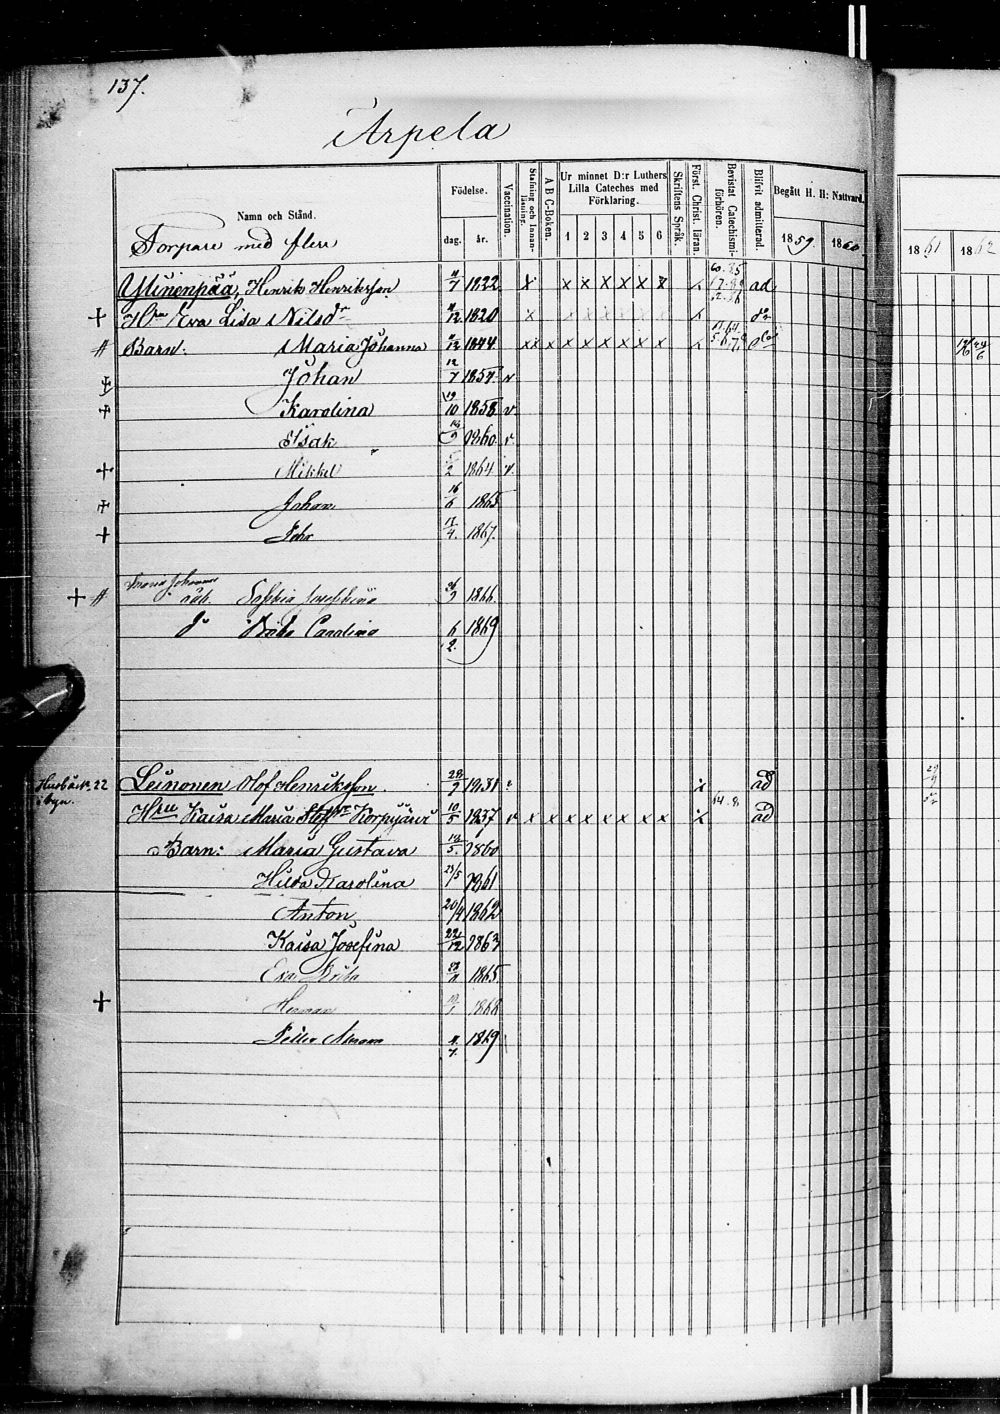 137.
Arpela
Namn och Stånd.
Torpare med flere
Födelse.
dag. år.
Vaccination.
Stafning och Innanläsning.
A B C-Boken.
Ur minnet D:r Luthers Lilla Cateches med Förklaring.
1 2 3 4 5 6
Skriftens Språk.
Först. Christ. läran.
Bevistat Catechismiförhören.
Blifvit admitterad.
Begått H. H: Nattvard.
1859. 1860 1861 1862
Ylinenpää, Henrik Henriksson 1822 x x x x x x x x ad
+ Hu Eva Lisa Nilsdr 12 1820 x x x x x x x x dr
# Barn: Maria Johanna 12 1844 x x x x x x x x x x
Johan 12/7 1857 v
Karolina 19/10 1858 v
Isak 1860 v
+ Mikkel 2 1864 v
Johan 16/6 1865
+ Pehr 17/4. 1867.
+ # Maria Johannas oäb. Sophia Josephina 26/9 1866.
do Brita Carolina 6/2. 1869
22 Leinonen Olof Henriksson. 28/9 1831 x ad
Hu Kaisa Maria Korpijärvi 10/5 1837 v x x x x x x x x x ad
Barn: Maria Gustava 1860
Hilda Karolina 1861
Anton 20/4 1862
Kaisa Josefina 22/12 1863
Eva Brita 1865
+ Herman 1868
1869